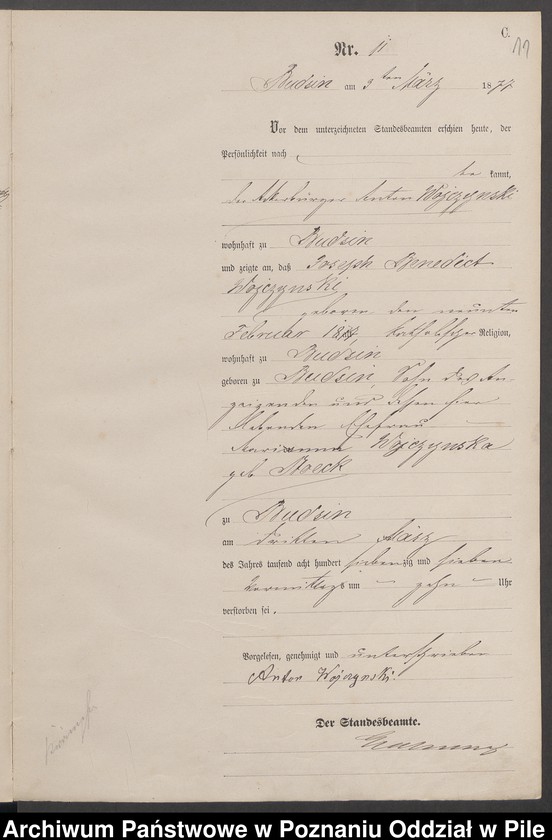 C.
11
Nr. 11
Budsin am 3ten März 1877
Vor dem unterzeichneten Standesbeamten erschien heute, der
Persönlichkeit nach
be kannt,
der Ackerbürger Anton Wojczynski
wohnhaft zu Budsin
und zeigte an, daß Joseph Benedict
Wojczynski
geboren den neunten
Februar 1877, katholischer Religion,
wohnhaft zu Budsin
geboren zu Budsin, Sohn des An
zeigenden und dessen hier
lebenden Ehefrau
Marianna Wojczynska
geb
zu Budsin
am dritten März
des Jahres tausend acht hundert siebenzig und sieben
Vormittags um zehn Uhr
verstorben sei.
Vorgelesen, genehmigt und unterschrieben
Anton Wojczynski.
Der Standesbeamte.
Archiwum Państwowe w Poznaniu Oddział w Pile